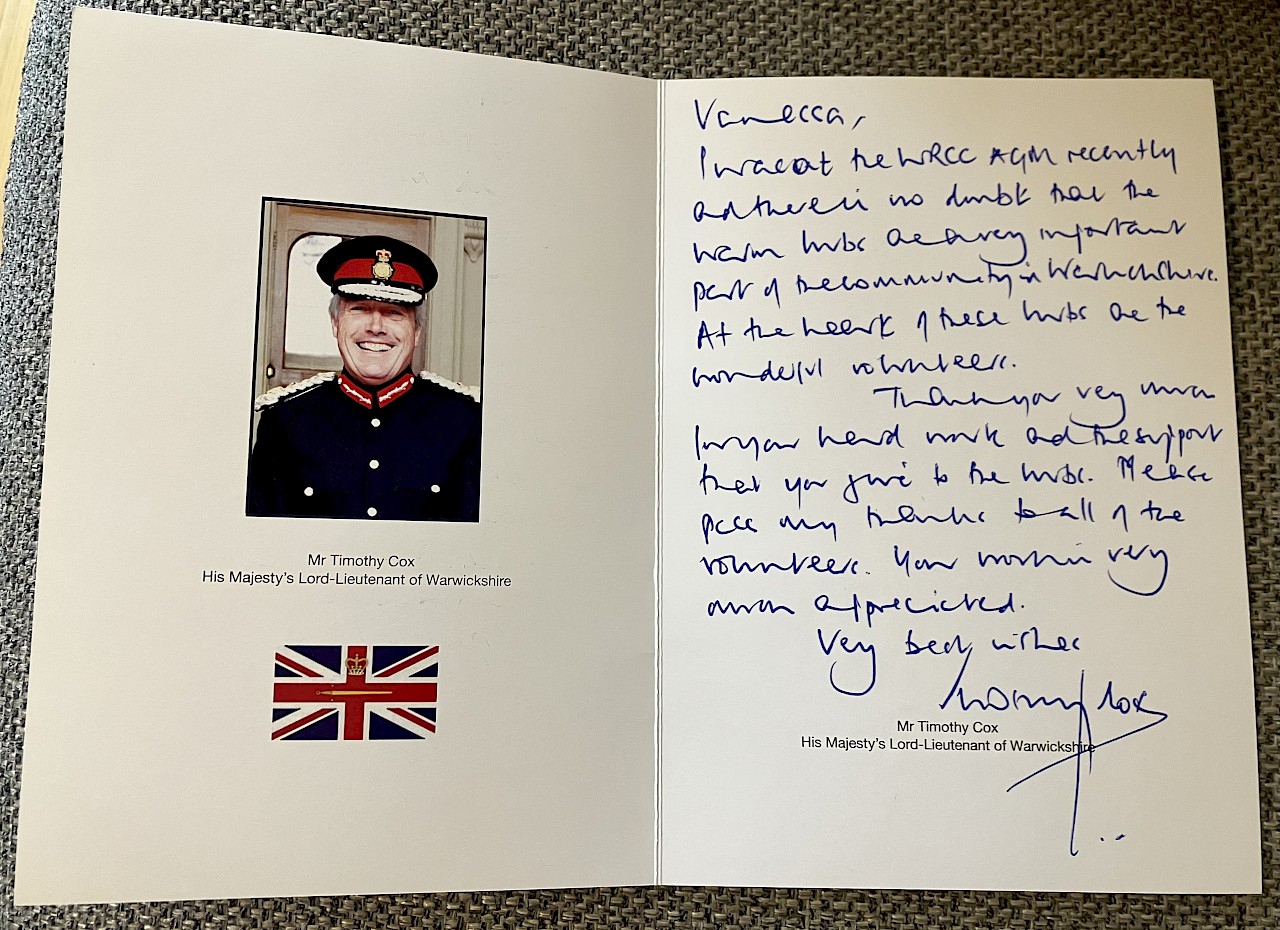 Mr Timothy Cox
His Majesty's Lord-Lieutenant of Warwickshire
Vanessa,
I was at the WRCC AGM recently
and there is no doubt that the
warm hubs are a very important
part of the community in Warwickshire.
At the heart of these hubs are the
wonderful volunteers.
Thank you very much
for your hard work and the support
that you give to the hubs. Please
pass my thanks to all of the
volunteers. Your work is very
much appreciated.
Very best wishes
Cox
Mr Timothy Cox
His Majesty's Lord-Lieutenant of Warwickshire